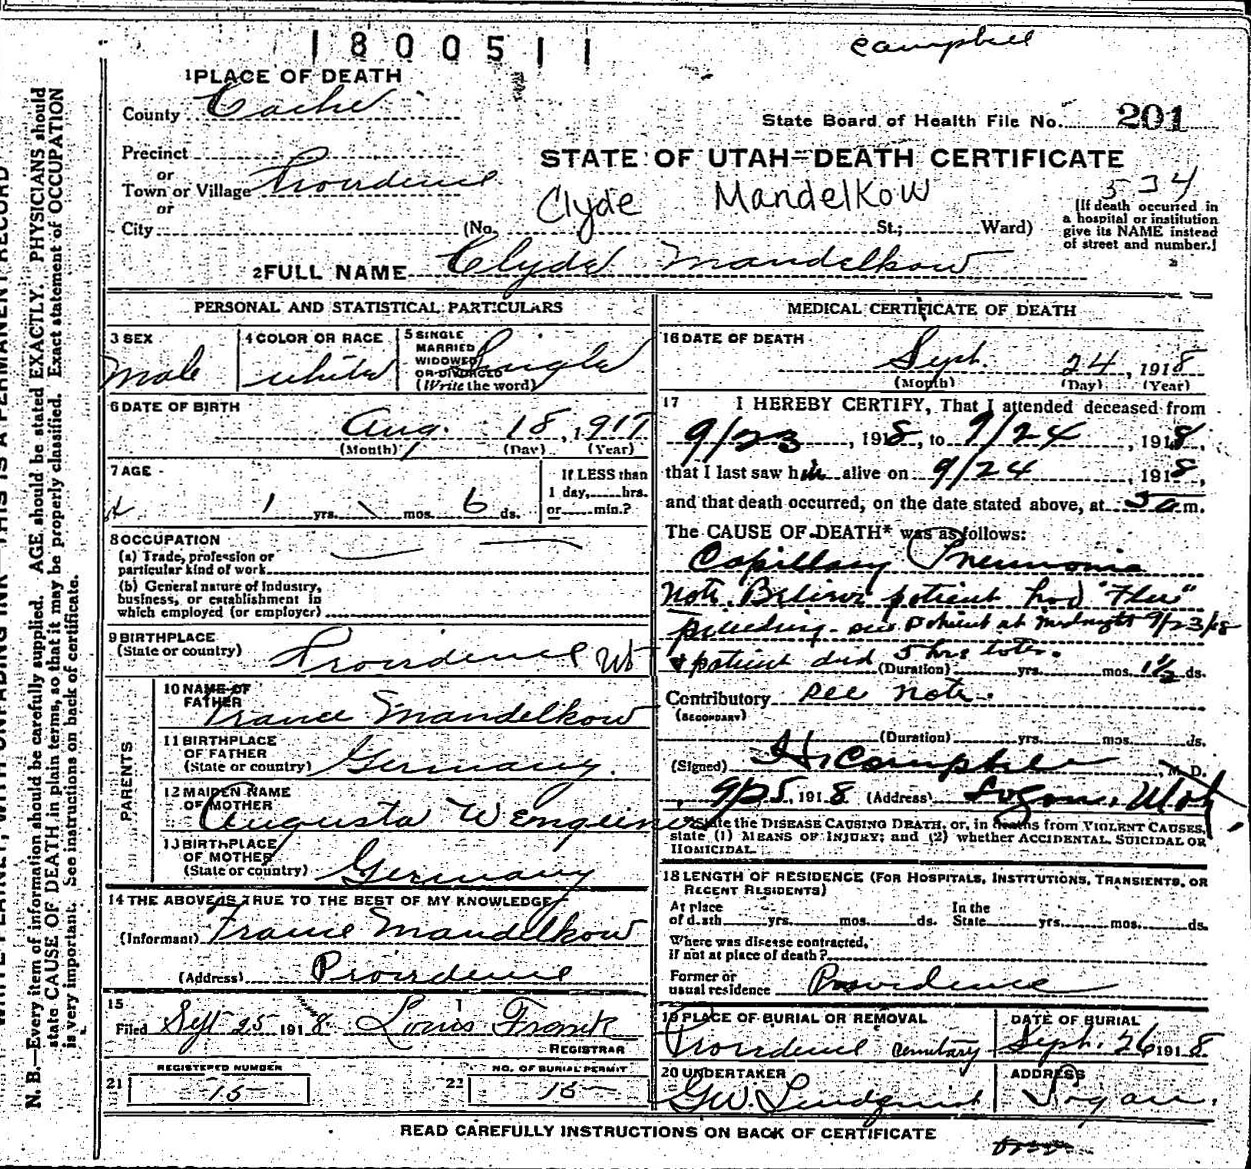 1800511
Campbell
1 PLACE OF DEATH
County Cache
State Board of Health File No. 201
Precinct
or
Town or Village Providence
or
City
STATE OF UTAH—DEATH CERTIFICATE
534
Clyde Mandelkow
(No. St.; Ward)
[If death occurred in
a hospital or institution
give its NAME instead
of street and number.]
2 FULL NAME Clyde Mandelkow
PERSONAL AND STATISTICAL PARTICULARS
3 SEX
male
4 COLOR OR RACE
white
5 SINGLE
MARRIED
WIDOWED
OR DIVORCED
(Write the word)
Single
6 DATE OF BIRTH
Aug. 18, 1917
(Month) (Day) (Year)
7 AGE
1 yrs. 1 mos. 6 ds.
If LESS than
1 day, hrs.
or min.?
8 OCCUPATION
(a) Trade, profession or
particular kind of work
(b) General nature of Industry,
business, or establishment in
which employed (or employer)
9 BIRTHPLACE
(State or country) Providence Ut
PARENTS
10 NAME OF
FATHER
Mandelkow
11 BIRTHPLACE
OF FATHER
(State or country) Germany.
12 MAIDEN NAME
OF MOTHER
Augusta
13 BIRTHPLACE
OF MOTHER
(State or country) Germany
14 THE ABOVE IS TRUE TO THE BEST OF MY KNOWLEDGE
(Informant) Mandelkow
(Address) Providence
15
Filed Sept 25 1918. Louis Frank
REGISTRAR
21 REGISTERED NUMBER
15
22 NO. OF BURIAL PERMIT
15
MEDICAL CERTIFICATE OF DEATH
16 DATE OF DEATH
Sept. 24, 1918
(Month) (Day) (Year)
17 I HEREBY CERTIFY, That I attended deceased from
9/23, 1918, to 9/24, 1918,
that I last saw him alive on 9/24 1918,
and that death occurred, on the date stated above, at 5 a m.
The CAUSE OF DEATH* was as follows:
Capillary Pneumonia
Note. Believe patient had "Flu"
preceding - saw patient at midnight 9/23/18
& patient died 5 hrs later.
(Duration) yrs. mos. 1½ ds.
Contributory see note.
(SECONDARY)
(Duration) yrs. mos. ds.
(Signed) Campbell, M. D.
9/25, 1918 (Address) Logan, Utah
*State the DISEASE CAUSING DEATH, or, in deaths from VIOLENT CAUSES,
state (1) MEANS OF INJURY; and (2) whether ACCIDENTAL, SUICIDAL OR
HOMICIDAL.
18 LENGTH OF RESIDENCE (FOR HOSPITALS, INSTITUTIONS, TRANSIENTS, OR
RECENT RESIDENTS)
At place
of death yrs. mos. ds.
In the
State yrs. mos. ds.
Where was disease contracted,
If not at place of death?
Former or
usual residence Providence
19 PLACE OF BURIAL OR REMOVAL
Providence Cemetary
DATE OF BURIAL
Sept. 26 1918
20 UNDERTAKER
G.W. Lindquist
ADDRESS
Logan.
READ CAREFULLY INSTRUCTIONS ON BACK OF CERTIFICATE
N. B.—Every item of information should be carefully supplied. AGE should be stated EXACTLY. PHYSICIANS should
state CAUSE OF DEATH in plain terms, so that it may be properly classified. Exact statement of OCCUPATION
is very important. See instructions on back of certificate.